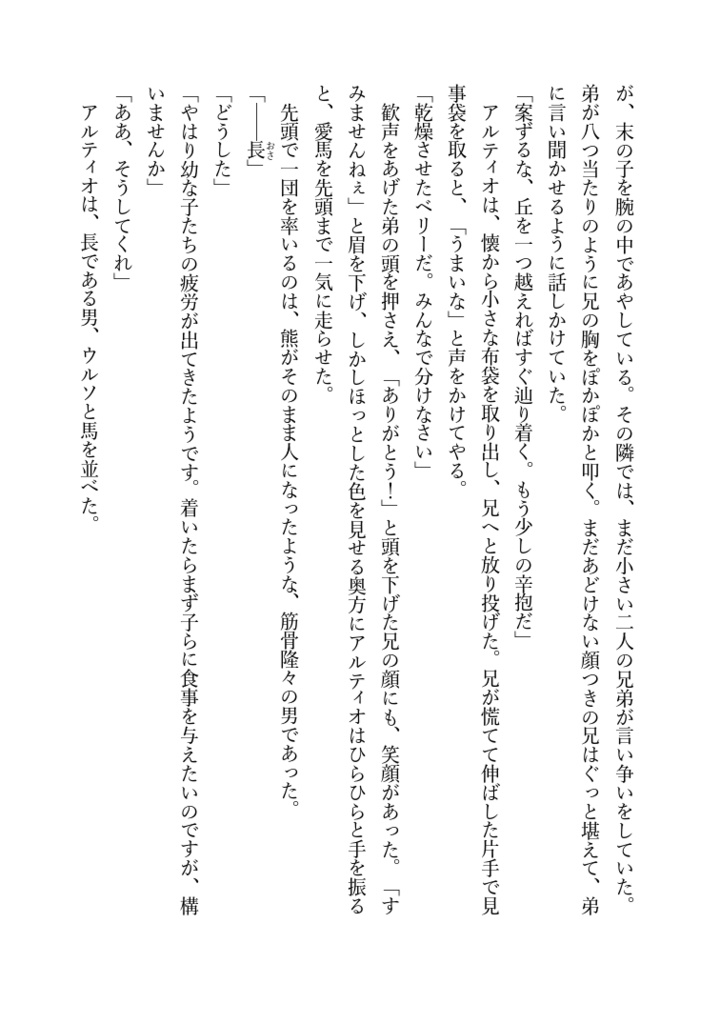 が、末の子を腕の中であやしている。その隣では、まだ小さい二人の兄弟が言い争いをしていた。
弟が八つ当たりのように兄の胸をぽかぽかと叩く。まだあどけない顔つきの兄はぐっと堪えて、弟
に言い聞かせるように話しかけていた。
「案ずるな、丘を一つ越えればすぐ辿り着く。もう少しの辛抱だ」
アルティオは、懐から小さな布袋を取り出し、兄へと放り投げた。兄が慌てて伸ばした片手で見
事袋を取ると、「うまいな」と声をかけてやる。
「乾燥させたベリーだ。みんなで分けなさい」
歓声をあげた弟の頭を押さえ、「ありがとう！」と頭を下げた兄の顔にも、笑顔があった。「す
みませんねぇ」と眉を下げ、しかしほっとした色を見せる奥方にアルティオはひらひらと手を振る
と、愛馬を先頭まで一気に走らせた。
先頭で一団を率いるのは、熊がそのまま人になったような、筋骨隆々の男であった。
「――長おさ」
「どうした」
「やはり幼な子たちの疲労が出てきたようです。着いたらまず子らに食事を与えたいのですが、構
いませんか」
「ああ、そうしてくれ」
アルティオは、長である男、ウルソと馬を並べた。